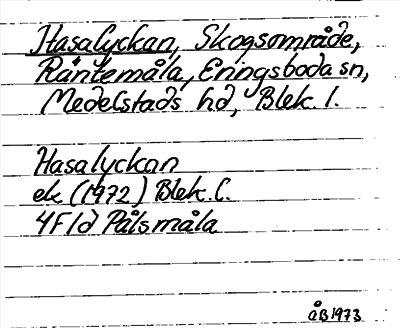 Hasalyckan, Skogsområde,
Räntemåla, Eringsboda sn,
Medelstads hd, Blek. l.
Hasalyckan
ek (1972) Blek. l.
4F1d Pålsmåla
ÅB 1973